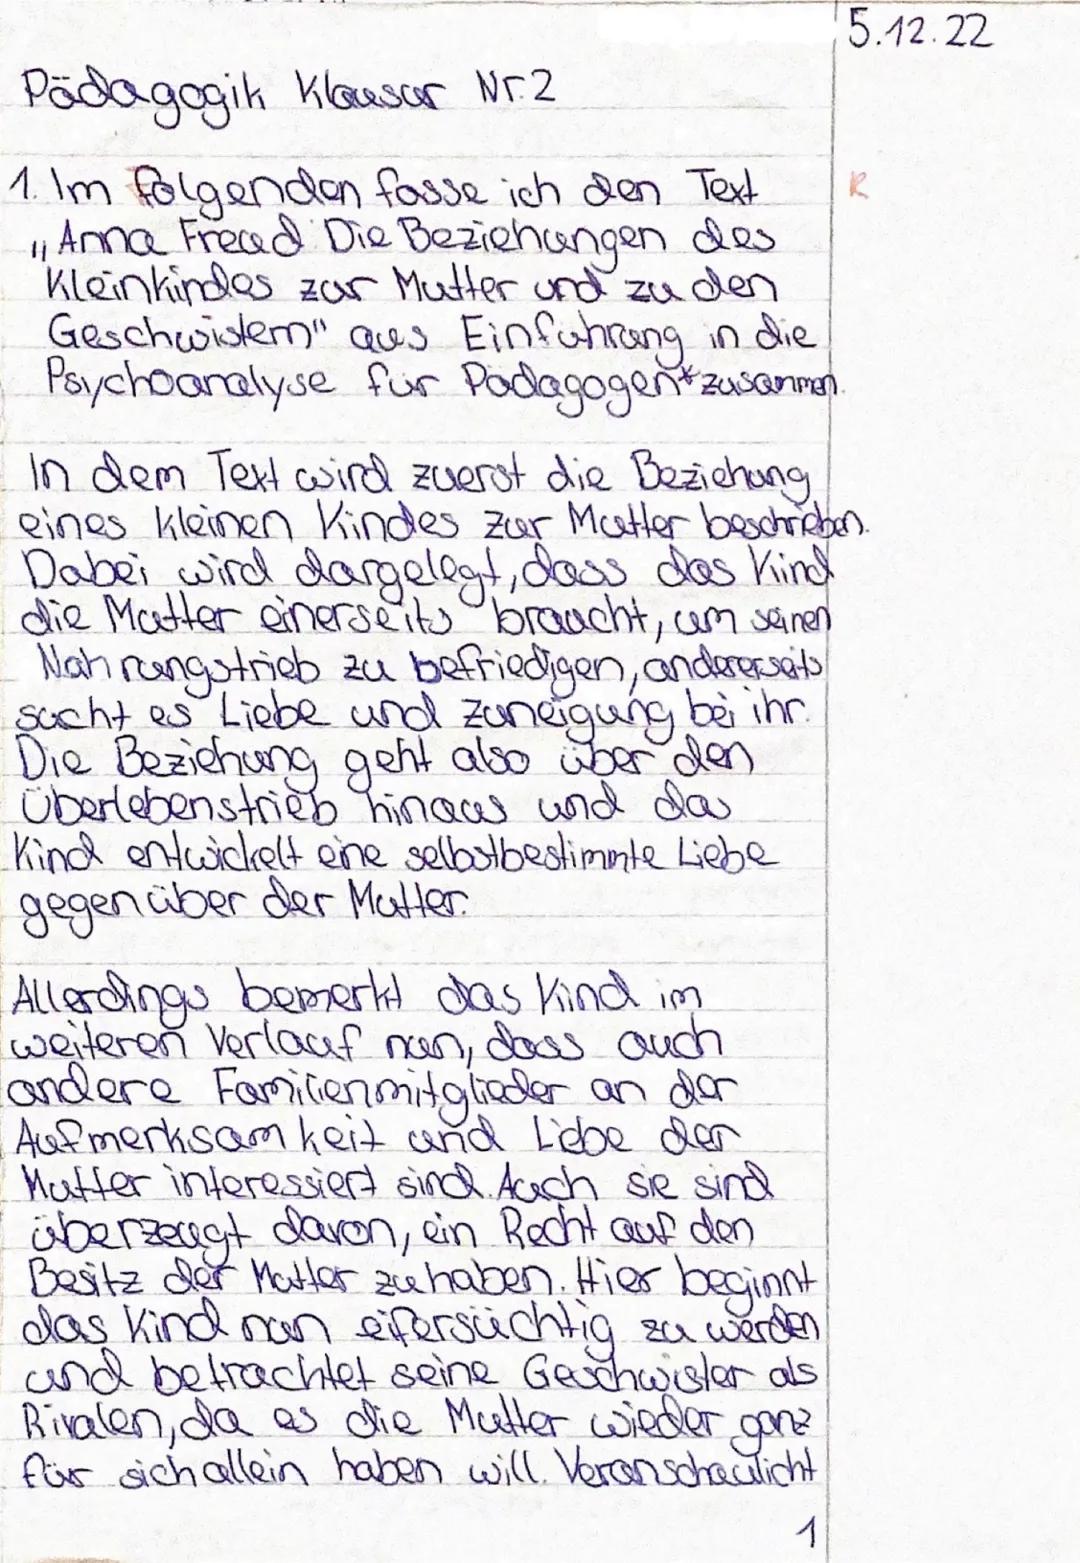 5.12.22
Pädagogik Klausur Nr.2
1. Im folgenden fasse ich den Text
R
„Anna Freud: Die Beziehungen des
Kleinkindes zur Mutter und zu den
Geschwistern" aus Einführung in die
Psychoanalyse für Pädagogen* zusammen.
In dem Text wird zuerst die Beziehung
eines kleinen Kindes zur Mutter beschrieben.
Dabei wird dargelegt, dass das Kind
die Mutter einerseits braucht, um seinen
Nahrungstrieb zu befriedigen, andererseits
sucht es Liebe und Zuneigung bei ihr.
Die Beziehung geht also über den
Überlebenstrieb hinaus und das
Kind entwickelt eine selbstbestimmte Liebe
gegenüber der Mutter.
Allerdings bemerkt das Kind im
weiteren Verlauf nun, dass auch
andere Familienmitglieder an der
Aufmerksamkeit und Liebe der
Mutter interessiert sind. Auch sie sind
überzeugt davon, ein Recht auf den
Besitz der Mutter zu haben. Hier beginnt
das Kind nun eifersüchtig zu werden
und betrachtet seine Geschwister als
Rivalen, da es die Mutter wieder ganz
für sich allein haben will. Veranschaulicht
1